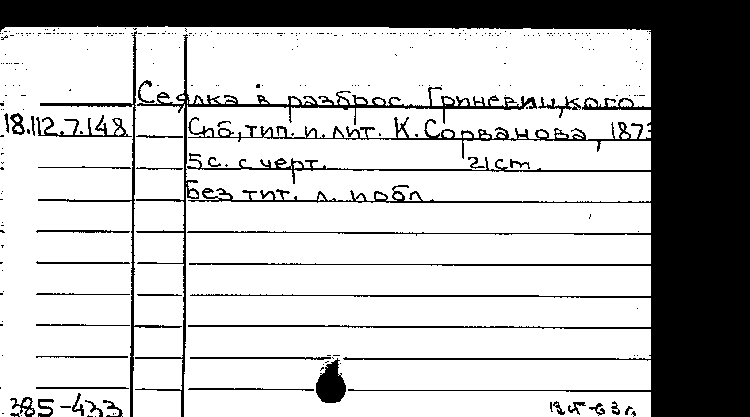 Сеялка в разброс Гриневицкого
18.112.7.148 Спб, тип. и лит. К. Сорванова, 1873
5 с. с черт. 21 cm.
Без тит. л. и обл.
385-433